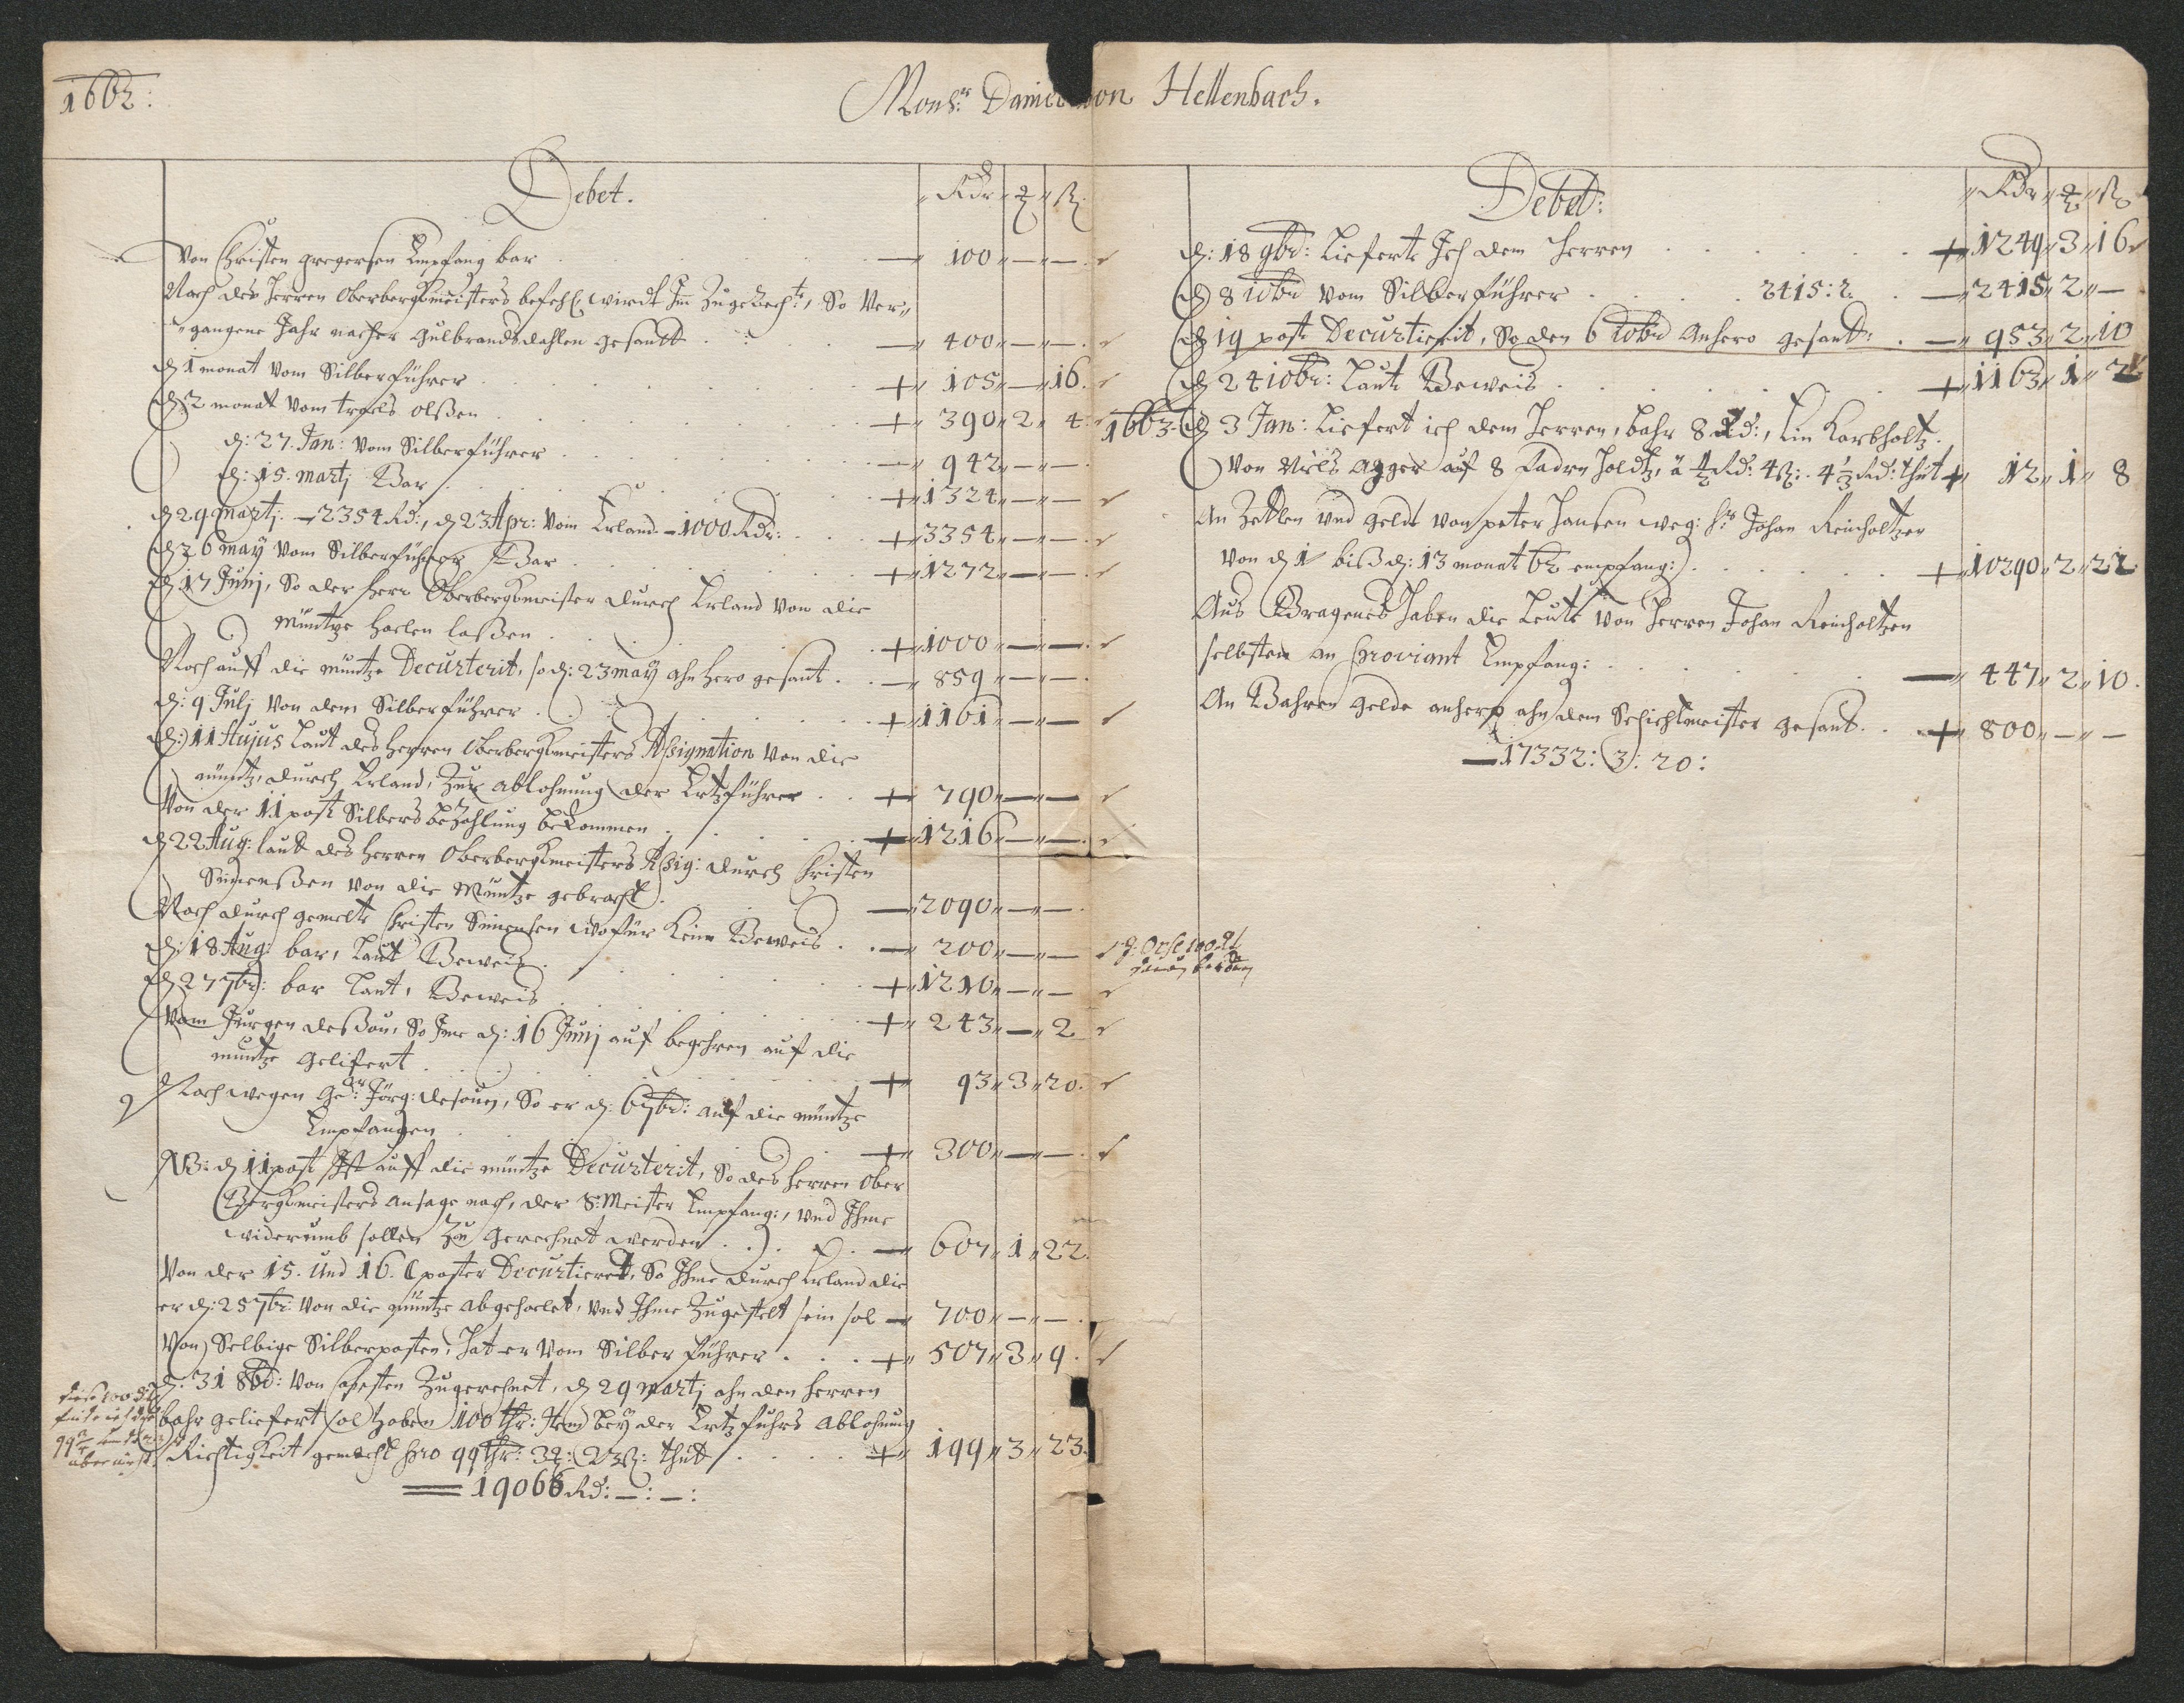 1662:
Mons:r Daniel von Hellenbach.
Debet. Rdr ß
Von Christen gregersen Empfang bar — 100 — —
Nach des Herren Oberbergkmeisters befehl wirdt Im Zuge , So Ver„
„gangene Jahr nacher Gulbrandsdahlen gesandt — 400 — —
d 1 monat vom Silberführer + 105 — 16.
d 2 monat vom Olßen + 390 2 4
d: 27. Jan: vom Silberführer — 942 — —
d: 15. martj Bar + 1324 — —
d 29 martj. — 2354 Rd:, d 23 Apr: vom Erland — 1000 Rdr: + 3354 — —
d 26 may vom Silberführer Bar + 1272 — —
d 17 Junj, So der Herr Oberbergkmeister durch Erland von die
Müntze holen laßen + 1000 — —
Noch auff die müntze Decurterit, so d: 23 may ahn hero gesant — 859 — —
d: 9 Julj von dem Silberführer + 1161 — —
d: 11 Hujus laut des Herren Oberbergkmeisters Assignation von die
müntz, durch Erland, Zur ablohnung der Ertzführer + 790 — —
Von der 11 post Silbers bezahlung bekommen + 1216 — —
d 22 Aug: laut des Herren Oberbergkmeisters Assig: durch Christen
Simenßen von die Müntze gebracht — 2090 — —
Noch durch gemelte Christen Simensen wofür Kein Beweis — 200 — —
d: 18 Aug: bar, Laut Beweis + 1210 — —
d 27 7br: bar Laut, Beweis + 243 — 2
Vom Jürgen deßou, So Ime d: 16 Junj auf begehren auf die
müntze gelifert + 93 3 20.
Noch wegen Ge:dr Jörg: desouy, So er d: 6 7br: auf die müntze
Empfangen + 300 — —
NB: d 11 post ist auff die müntze Decurterit, So des Herren Ober
Bergkmeisters ansage nach, der S: Meister Empfang:, und Ihme
widerumb sollen Zu gerechnet werden — 607 1 22.
Von der 15. Und 16. poster Decurtieret, So Ihme durch Erland die
er d: 25 7br: von die müntze abgeholet, und Ihme Zugestelt sein sol — 700 — —
Von Selbige Silberposten, Hat er vom Silber führer + 507 3 9.
d: 31 8br: von Zugerechnet, d 29 martj ahn den Herren
bahr geliefert sol haben 100 thr: Item bey der Ertzfuhrs ablohnung
Richtigkeit gemacht pro 99 thr: 3 : 23 ß: thut + 199 3 23.
aber nicht
= 19066 Rd: — : — :
Debet: Rdr ß
d: 18 9br: Liefert Ich dem Herren + 1249 3 16
d 8 10br vom Silberführer 2415:2. — 2415 2 —
d 19 post Decurtierit, So den 6 10br Anhero gesant: — 953 2 10
d 24 10br: Laut Beweis + 1163 1 2
1663 d 3 Jan: Liefert ich dem Herren, bahr 8 Rd:, Ein Karbholtz
Von Niels Agger auf 8 Faden Holtz, à ½ Rd: 4 ß: 4⅓ Rd: thut + 12 1 8
An Zetlen und geldt von peter Jansen weg: H:rs Johan Reinholtzen
von d 1 biß d: 13 monat 62 empfang: + 10290 2 22
Aus Bragenes haben die Leute von Herren Johan Reinholtzen
selbsten an Proviant Empfang: — 447 2 10.
An Bahren Gelde anhero ahn dem Schichtmeister gesant. + 800 — —
— 17332: 3: 20: